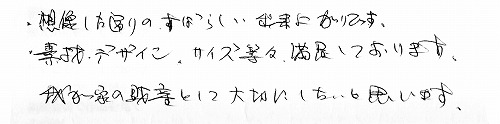 ・想像した通りの、すばらしい出来上がりです。
・素材、デザイン、サイズ等々、満足しております。
我が家の財産として大切にしたいと思います。